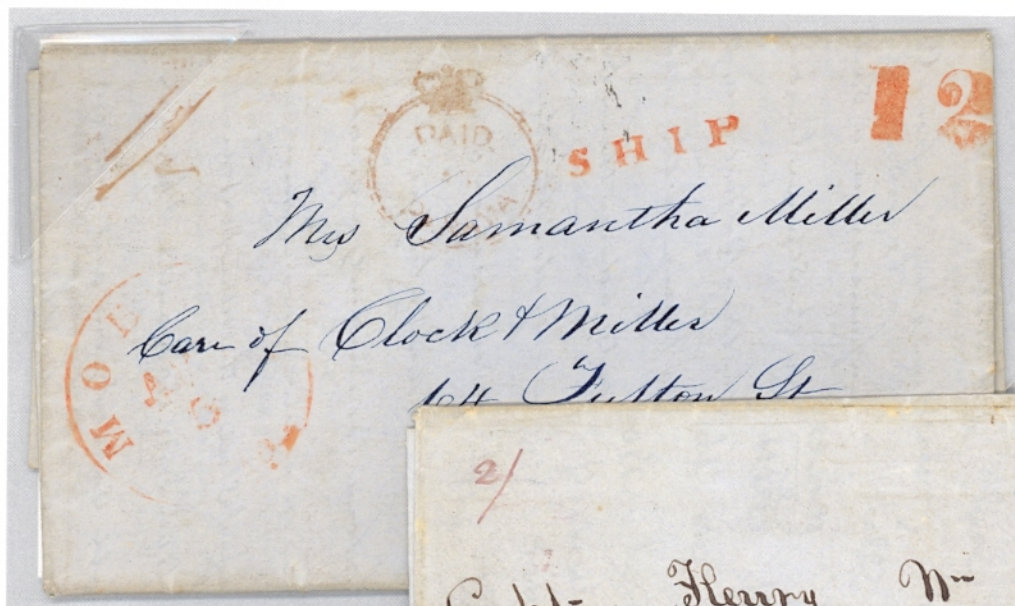 PAID
SHIP 12
Mrs Samantha Miller
Care of Clock & Miller
64 Fulton St
MO
2/
Capt Henry Wm